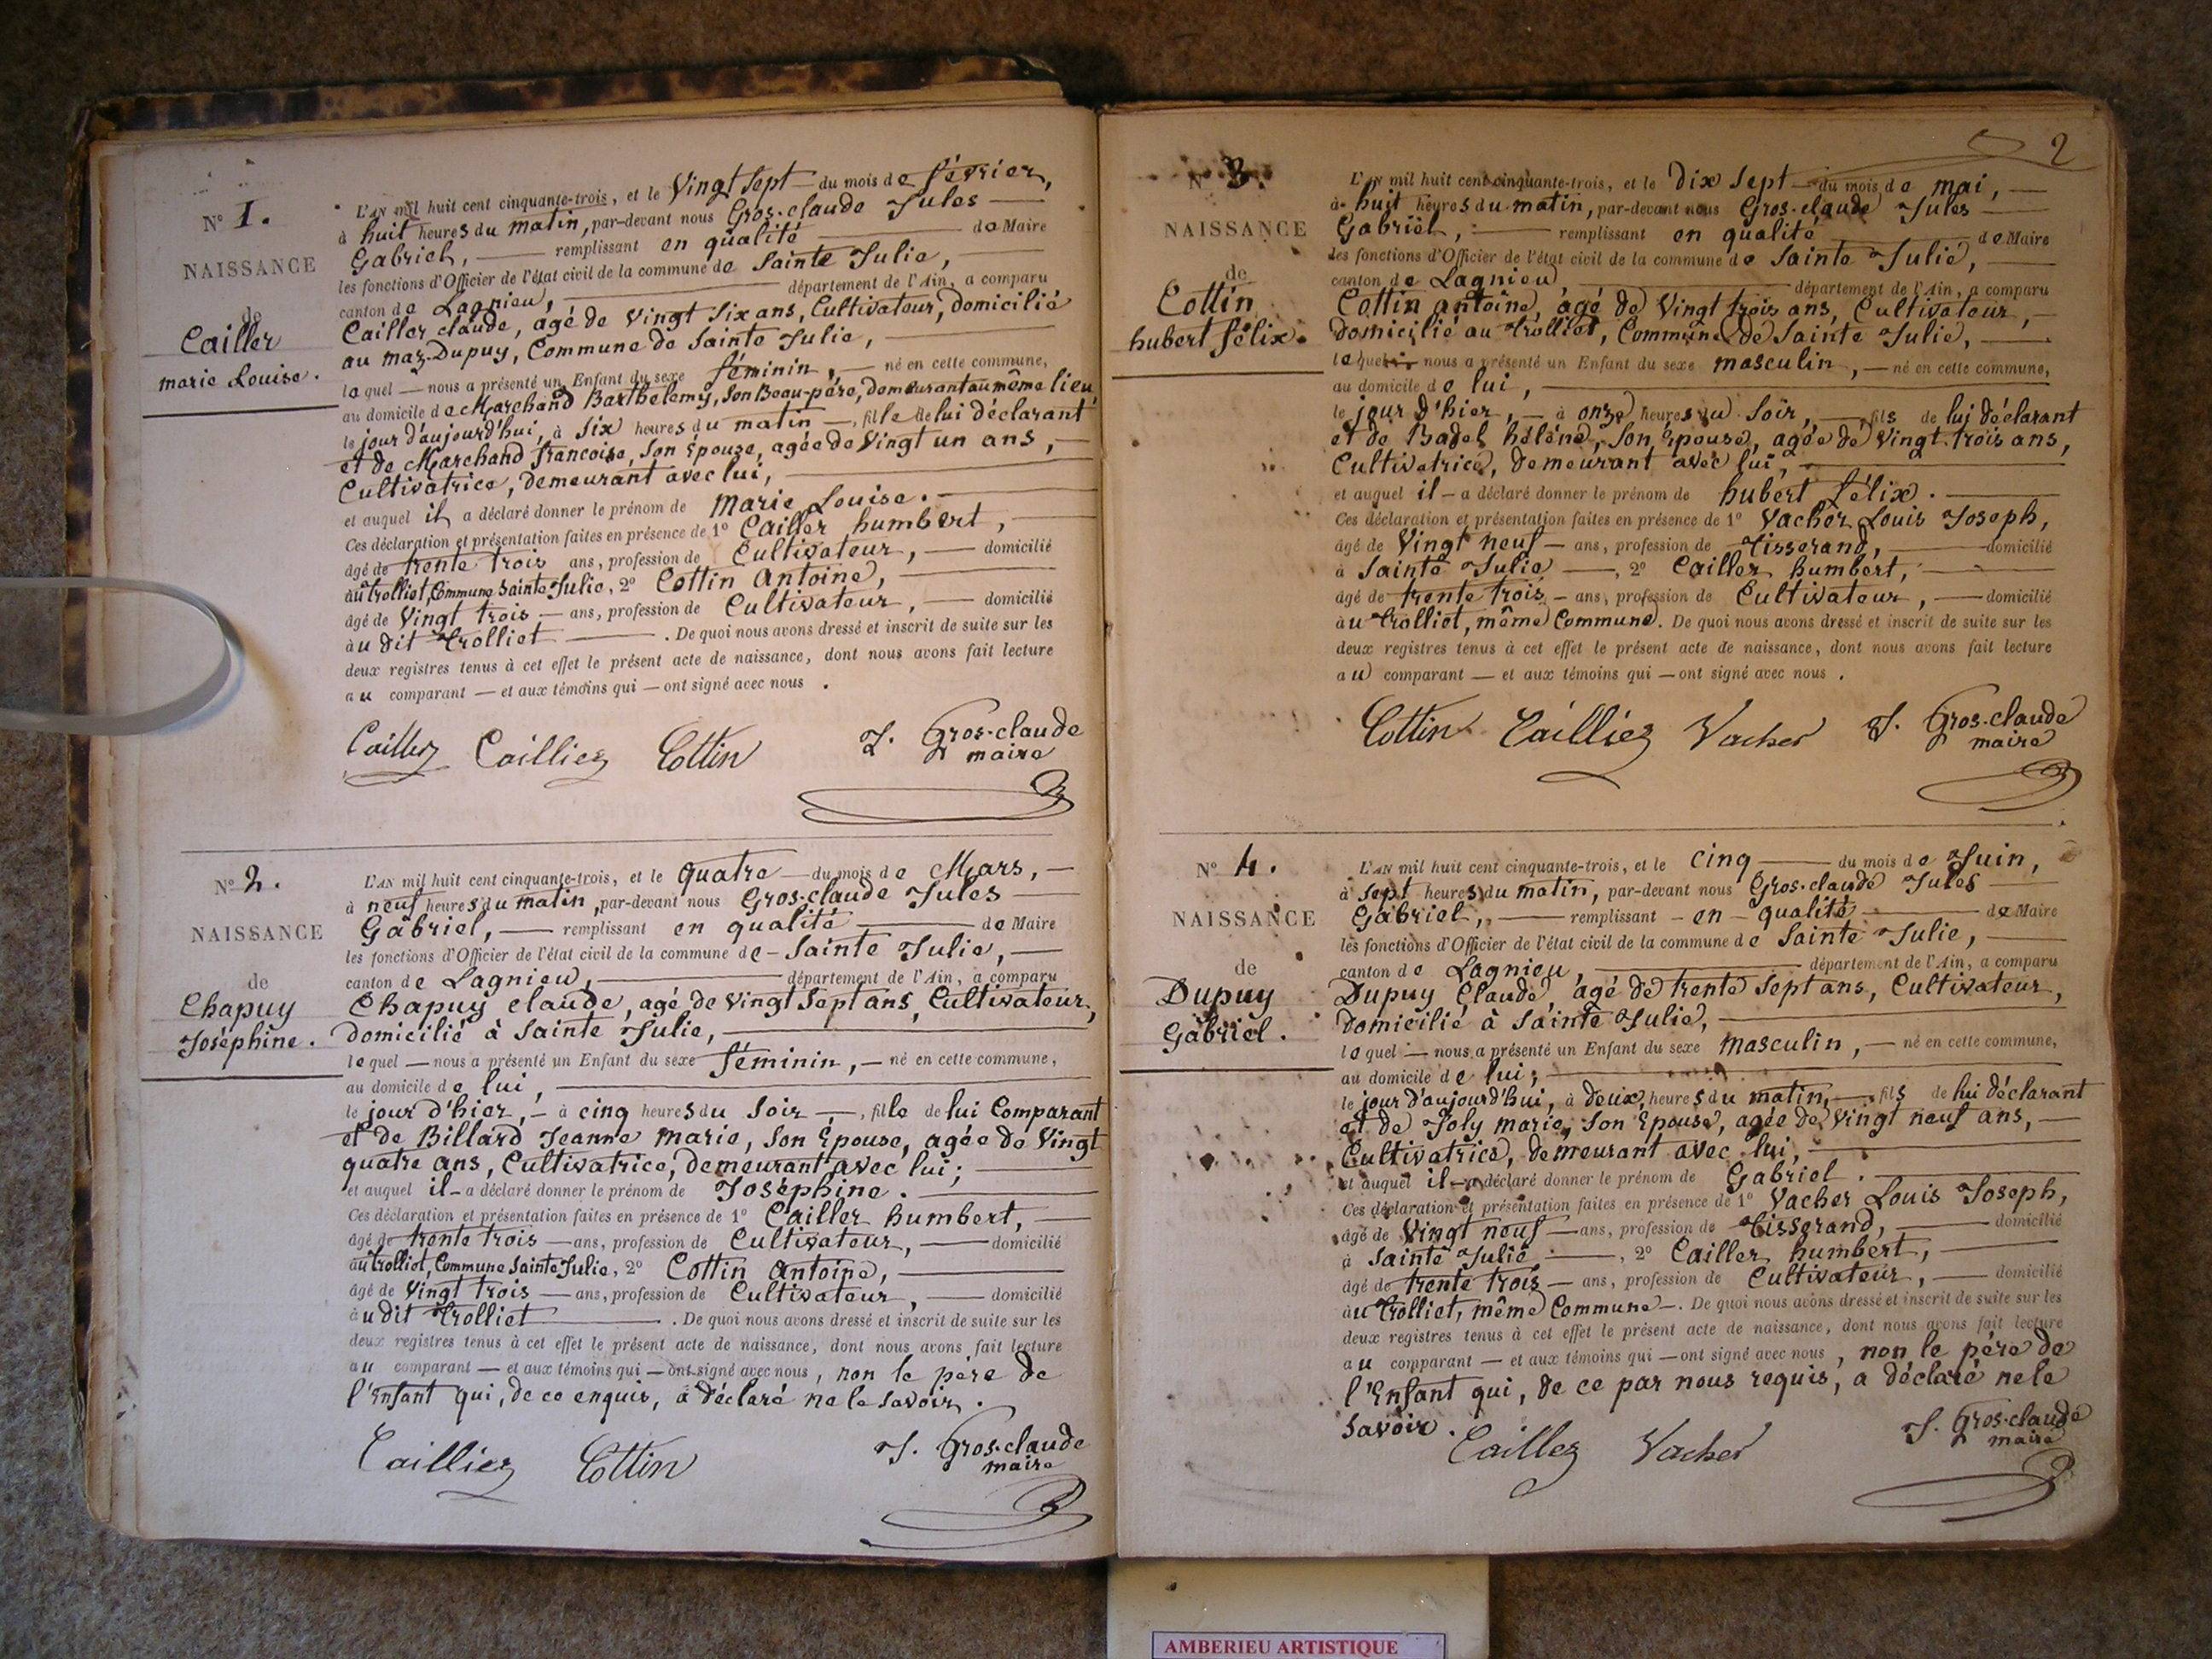 N° 1.
NAISSANCE
de
Cailler
marie Louise.
L'AN mil huit cent cinquante-trois, et le Vingt Sept du mois de février,
à huit heures du matin, par-devant nous Gros-claude Jules
Gabriel, remplissant en qualité de Maire
les fonctions d'Officier de l'état civil de la commune de Sainte Julie,
canton de Lagnieu, département de l'Ain, a comparu
Cailler claude, agé de Vingt Six ans, Cultivateur, domicilié
au maz-Dupuy, Commune de Sainte Julie,
lequel nous a présenté un Enfant du sexe féminin, né en cette commune,
au domicile de Marchand Barthelemy, Son Beau-père, demeurant au même lieu
le jour d'aujourd'hui, à Six heures du matin, fille de lui déclarant
et de Marchand francoise, Son Epouse, agée de Vingt un ans,
Cultivatrice, demeurant avec lui,
et auquel il a déclaré donner le prénom de Marie Louise.
Ces déclaration et présentation faites en présence de 1° Cailler humbert,
âgé de trente trois ans, profession de Cultivateur, domicilié
au Trolliet, Commune Sainte Julie, 2° Cottin Antoine,
âgé de Vingt trois ans, profession de Cultivateur, domicilié
àu dit Trolliet. De quoi nous avons dressé et inscrit de suite sur les
deux registres tenus à cet effet le présent acte de naissance, dont nous avons fait lecture
au comparant et aux témoins qui ont signé avec nous.
Cailler Caillier Cottin J. Gros-claude
maire
N° 2.
NAISSANCE
de
Chapuy
Joséphine.
L'AN mil huit cent cinquante-trois, et le quatre du mois de Mars,
à neuf heures du matin, par-devant nous Gros-claude Jules
Gabriel, remplissant en qualité de Maire
les fonctions d'Officier de l'état civil de la commune de Sainte Julie,
canton de Lagnieu, département de l'Ain, a comparu
Chapuy claude, agé de Vingt Sept ans, Cultivateur,
domicilié à Sainte Julie,
lequel nous a présenté un Enfant du sexe féminin, né en cette commune,
au domicile de lui,
le jour d'hier, à cinq heures du Soir, fille de lui Comparant
et de Billard Jeanne marie, Son Epouse, agée de Vingt
quatre ans, Cultivatrice, demeurant avec lui;
et auquel il a déclaré donner le prénom de Joséphine.
Ces déclaration et présentation faites en présence de 1° Cailler humbert,
âgé de trente trois ans, profession de Cultivateur, domicilié
au Trolliet, Commune Sainte Julie, 2° Cottin Antoine,
âgé de Vingt trois ans, profession de Cultivateur, domicilié
àu dit Trolliet. De quoi nous avons dressé et inscrit de suite sur les
deux registres tenus à cet effet le présent acte de naissance, dont nous avons fait lecture
au comparant et aux témoins qui ont signé avec nous, non le père de
l'Enfant qui, de ce enquis, a déclaré ne le Savoir.
Caillier Cottin J. Gros-claude
maire
2
N° 3.
NAISSANCE
de
Cottin
hubert félix.
L'AN mil huit cent cinquante-trois, et le dix Sept du mois de mai,
à huit heures du matin, par-devant nous Gros-claude Jules
Gabriel, remplissant en qualité de Maire
les fonctions d'Officier de l'état civil de la commune de Sainte Julie,
canton de Lagnieu, département de l'Ain, a comparu
Cottin antoine, agé de Vingt trois ans, Cultivateur,
domicilié au Trolliet, Commune de Sainte Julie,
lequel nous a présenté un Enfant du sexe masculin, né en cette commune,
au domicile de lui,
le jour d'hier, à onze heures du Soir, fils de lui déclarant
et de Badel hélène, Son Epouse, agée de Vingt trois ans,
Cultivatrice, demeurant avec lui,
et auquel il a déclaré donner le prénom de hubert félix.
Ces déclaration et présentation faites en présence de 1° Vacher Louis Joseph,
âgé de Vingt neuf ans, profession de Tisserand, domicilié
à Sainte Julie, 2° Cailler humbert,
âgé de trente trois ans, profession de Cultivateur, domicilié
àu Trolliet, même Commune. De quoi nous avons dressé et inscrit de suite sur les
deux registres tenus à cet effet le présent acte de naissance, dont nous avons fait lecture
au comparant et aux témoins qui ont signé avec nous.
Cottin Caillier Vacher J. Gros-claude
maire
N° 4.
NAISSANCE
de
Dupuy
Gabriel.
L'AN mil huit cent cinquante-trois, et le cinq du mois de Juin,
à Sept heures du matin, par-devant nous Gros-claude Jules
Gabriel, remplissant en qualité de Maire
les fonctions d'Officier de l'état civil de la commune de Sainte Julie,
canton de Lagnieu, département de l'Ain, a comparu
Dupuy Claude, agé de trente Sept ans, Cultivateur,
domicilié à Sainte Julie,
lequel nous a présenté un Enfant du sexe masculin, né en cette commune,
au domicile de lui;
le jour d'aujourd'hui, à deux heures du matin, fils de lui déclarant
et de Joly marie, Son Epouse, agée de Vingt neuf ans,
Cultivatrice, demeurant avec lui,
et auquel il a déclaré donner le prénom de Gabriel.
Ces déclaration et présentation faites en présence de 1° Vacher Louis Joseph,
âgé de Vingt neuf ans, profession de Tisserand, domicilié
à Sainte Julie, 2° Cailler humbert,
âgé de trente trois ans, profession de Cultivateur, domicilié
àu Trolliet, même Commune. De quoi nous avons dressé et inscrit de suite sur les
deux registres tenus à cet effet le présent acte de naissance, dont nous avons fait lecture
au comparant et aux témoins qui ont signé avec nous, non le père de
l'Enfant qui, de ce par nous requis, a déclaré ne le
Savoir.
Cailler Vacher J. Gros-claude
maire
AMBERIEU ARTISTIQUE